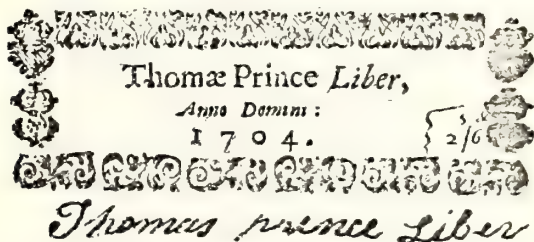 Thomæ Prince Liber,
Anno Domini:
1704.
2/6
Thomas prince Liber